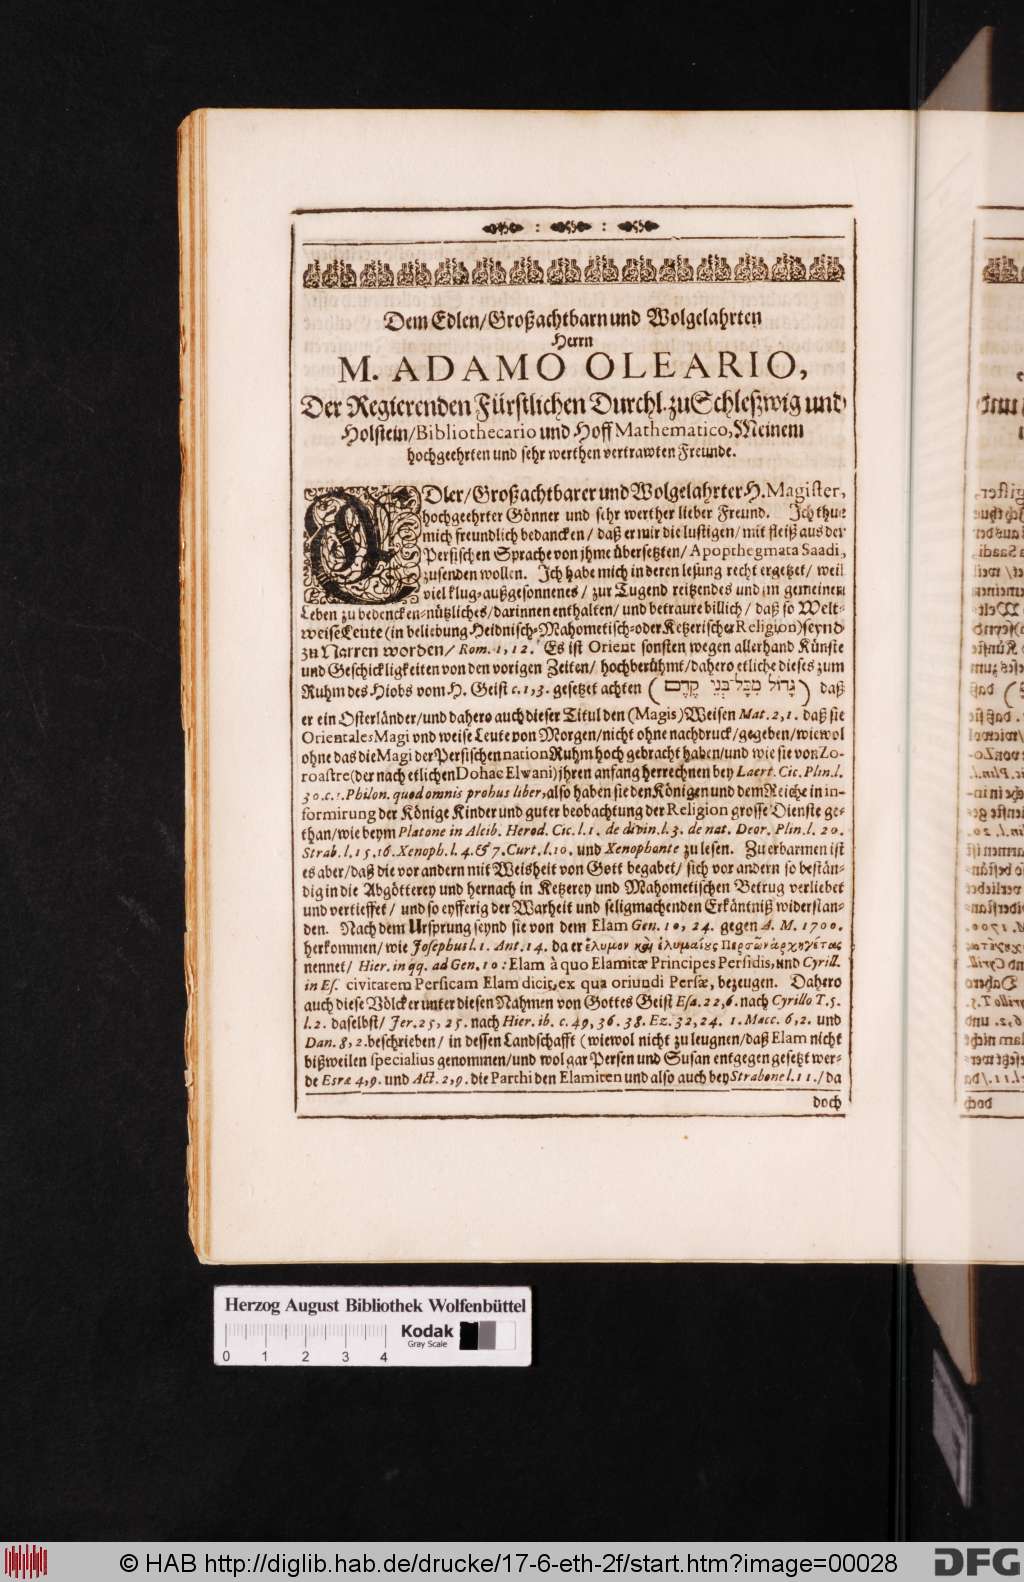 Dem Edlen/Großachtbarn und Wolgelahrten
Herrn
M. ADAMO OLEARIO,
Der Regierenden Fürstlichen Durchl. zu Schleßwig und
Holstein/Bibliothecario und Hoff Mathematico, Meinem
hochgeehrten und sehr werthen vertrawten Freunde.
EDler/Großachtbarer und Wolgelahrter H. Magister,
hochgeehrter Gönner und sehr werther lieber Freund. Ich thue
mich freundlich bedancken/ daß er mir die lustigen/ mit fleiß aus der
Persischen Sprache von jhme übersetzten/ Apopthegmata Saadi,
zusenden wollen. Ich habe mich in deren lesung recht ergetzet/ weil
viel klug-außgesonnenes/ zur Tugend reitzendes und im gemeinem
Leben zu bedencken-nützliches/darinnen enthalten/ und betraure billich/ daß so Welt-
weise Leute (in beliebung Heidnisch-Mahometisch-oder Ketzerischer Religion) seynd
zu Narren worden/ Rom. 1, 12. Es ist Orient sonsten wegen allerhand Künste
und Geschickligkeiten von den vorigen Zeiten/ hochberühmt/dahero etliche dieses zum
Ruhm des Hiobs vom H. Geist c. 1, 3. gesetzet achten (גָּדוֹל מִכָּל־בְּנֵי קֶדֶם) daß
er ein Osterländer/und dahero auch dieser Titul den (Magis) Weisen Mat. 2, 1. daß sie
Orientales Magi vnd weise Leute von Morgen/ nicht ohne nachdruck/gegeben/wiewol
ohne das die Magi der Persischen nation Ruhm hoch gebracht haben/und wie sie von Zo-
roastre (der nach etlichen Dohac Elwani) jhren anfang herrechnen bey Laert. Cic. Plin. l.
30. c. 1. Philon. quod omnis probus liber, also haben sie den Königen und dem Reiche in in-
formirung der Könige Kinder und guter beobachtung der Religion grosse Dienste ge-
than/wie beym Platone in Alcib. Herod. Cic. l. 1. de divin. l. 3. de nat. Deor. Plin. l. 20.
Strab. l. 15. 16. Xenoph. l. 4. & 7. Curt. l. 10. und Xenophonte zu lesen. Zu erbarmen ist
es aber/daß die vor andern mit Weisheit von Gott begabet/ sich vor andern so bestän-
dig in die Abgötterey und hernach in Ketzerey und Mahometischen Betrug verliebet
und vertieffet/ und so eyfferig der Warheit und seligmachenden Erkäntniß widerstan-
den. Nach dem Ursprung seynd sie von dem Elam Gen. 10, 24. gegen A. M. 1700.
herkommen/ wie Josephus l. 1. Ant. 14. da er ἔλυμον καὶ ἐλυμαίους Περσῶν ἀρχηγέτας
nennet/ Hier. in qq. ad Gen. 10: Elam à quo Elamitæ Principes Persidis, und Cyrill.
in Es. civitatem Persicam Elam dicit, ex qua oriundi Persæ, bezeugen. Dahero
auch diese Völcker unter diesen Nahmen von Gottes Geist Esa. 22, 6. nach Cyrillo T. 5.
l. 2. daselbst/ Jer. 25, 25. nach Hier. ib. c. 49, 36. 38. Ez. 32, 24. 1. Macc. 6, 2. und
Dan. 8, 2. beschrieben/ in dessen Landschafft (wiewol nicht zu leugnen/daß Elam nicht
bißweilen specialius genommen/und wol gar Persen und Susan entgegen gesetzt wer-
de Esræ 4, 9. und Act. 2, 9. die Parthi den Elamiten und also auch bey Strabone l. 11./ da
doch
Herzog August Bibliothek Wolfenbüttel
Kodak
Gray Scale
0 1 2 3 4
© HAB http://diglib.hab.de/drucke/17-6-eth-2f/start.htm?image=00028
DFG